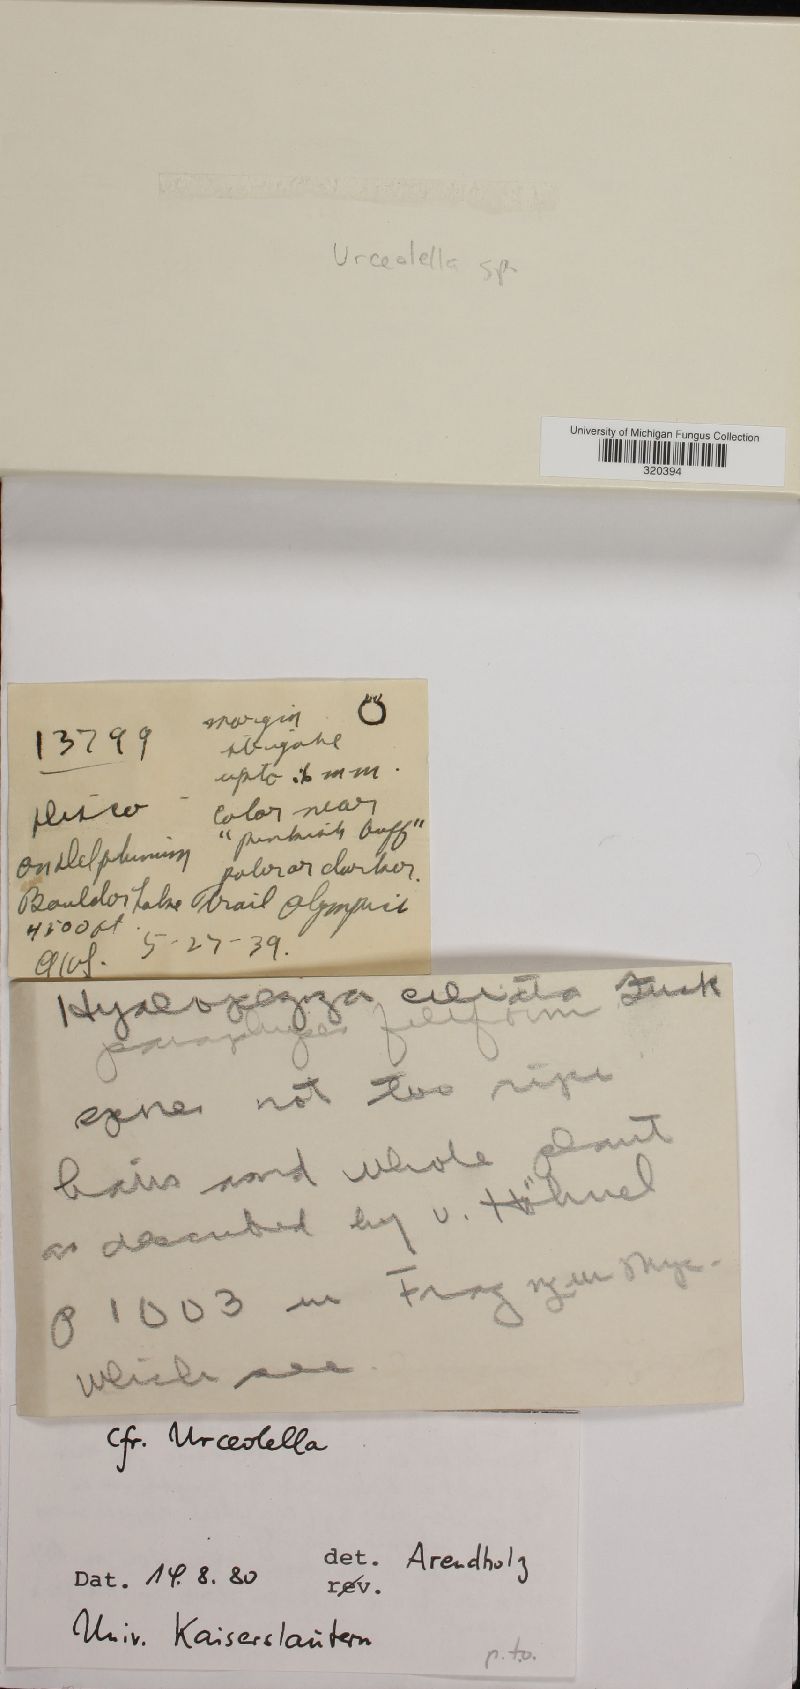 Urceolella sp.
University of Michigan Fungus Collection
320394
13799
margin
strigose
upto .6 mm.
Disco -
color near
"pinkish buff"
on Delphinium
paler or darker.
Boulder Lake Trail Olympic
4500 ft.
5-27-39.
Hyalopeziza ciliata Fuck
paraphyses filiform
spores not too ripe
hairs and whole plant
as described by v. Höhnel
p 1003 in Frag zur Myc-
which see.
cfr. Urceolella
det. Arendholz
Dat. 14. 8. 80
rev.
Univ. Kaiserslautern
p.t.o.